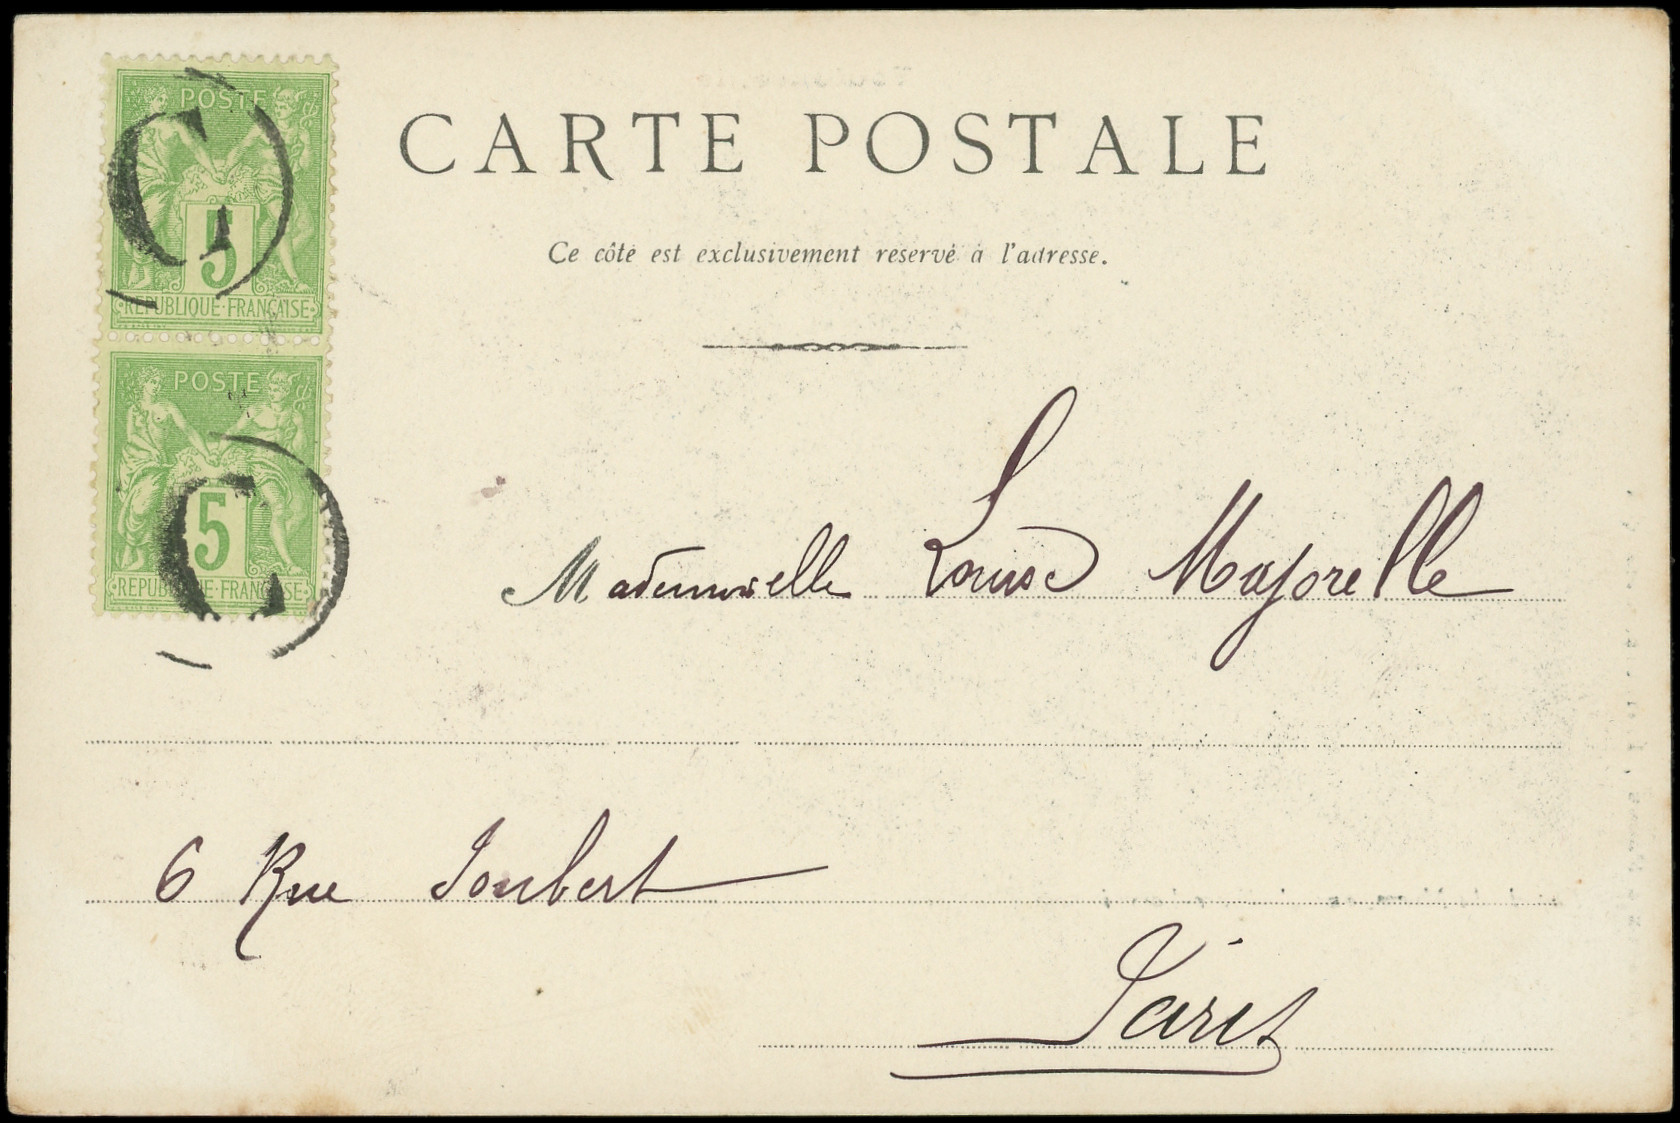 POSTE
C
5
REPUBLIQUE·FRANÇAISE
POSTE
C
5
REPUBLIQUE·FRANÇAISE
CARTE POSTALE
Ce côté est exclusivement réservé à l'adresse.
Mademoiselle Louise Majorelle
6 Rue Joubert
Paris